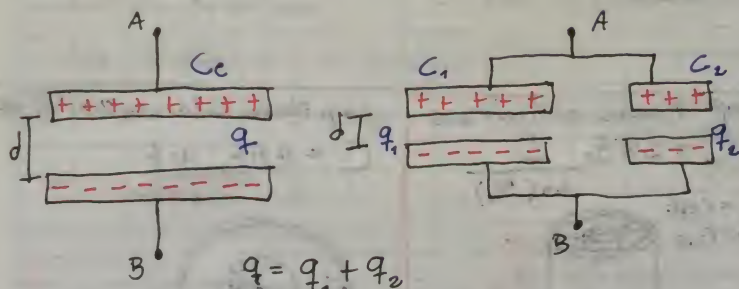 A
Ce
+ + + + + + + +
d
q
- - - - - - - -
B
A
C₁
C₂
+ + + + +
+ + +
d
q₁
q₂
- - - - -
- - -
B
q = q₁ + q₂